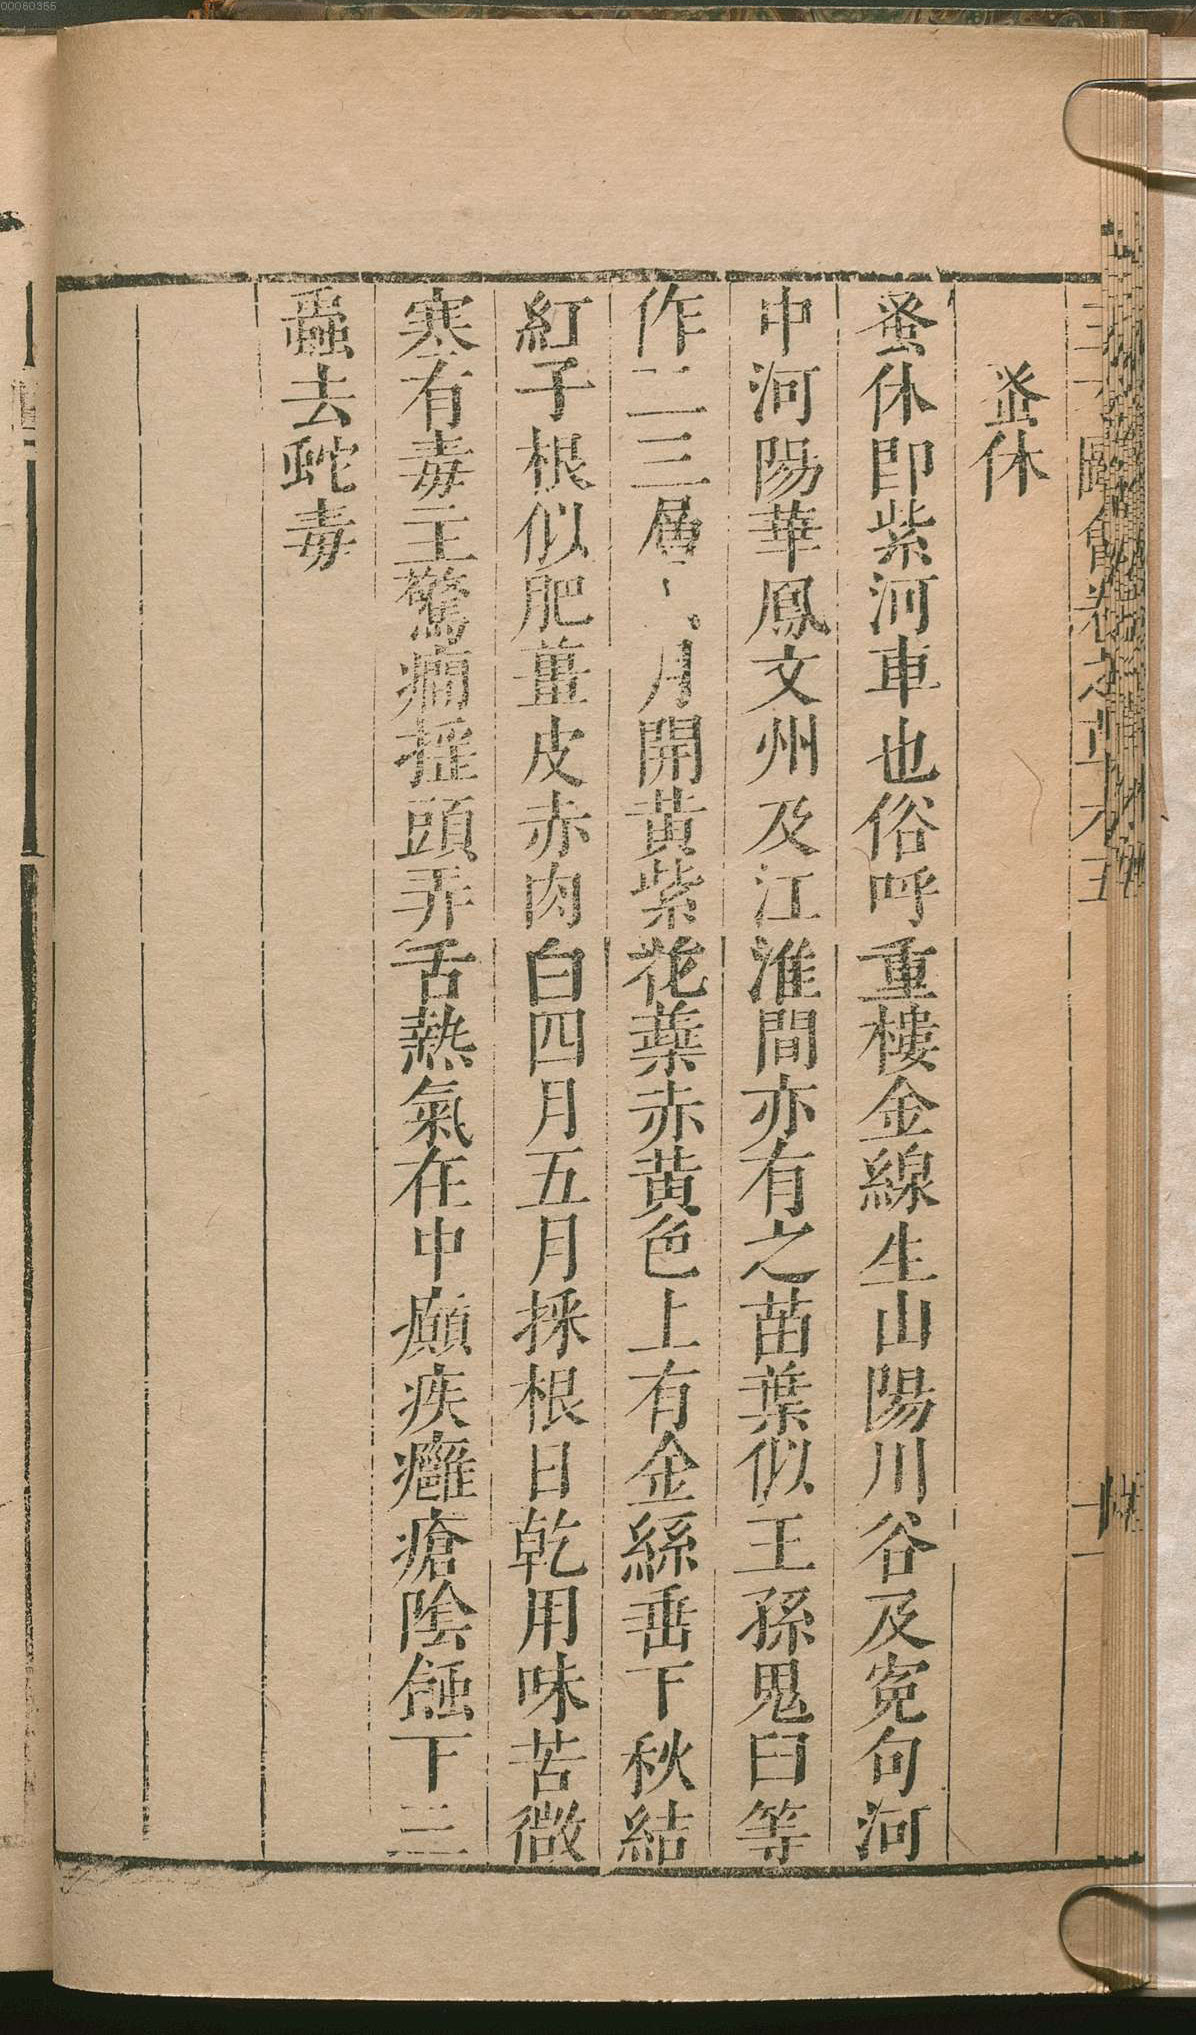 00060355
蚤休
蚤休即紫河車也俗呼重樓金線生山陽川谷及宛句河
中河陽華鳳文州及江淮間亦有之苗葉似王孫鬼臼等
作二三層六月開黃紫花蘂赤黃色上有金絲垂下秋結
紅子根似肥薑皮赤肉白四月五月採根日乾用味苦微
寒有毒主驚癎揺頭弄舌熱氣在中癲疾癰瘡陰蝕下三
蟲去蛇毒